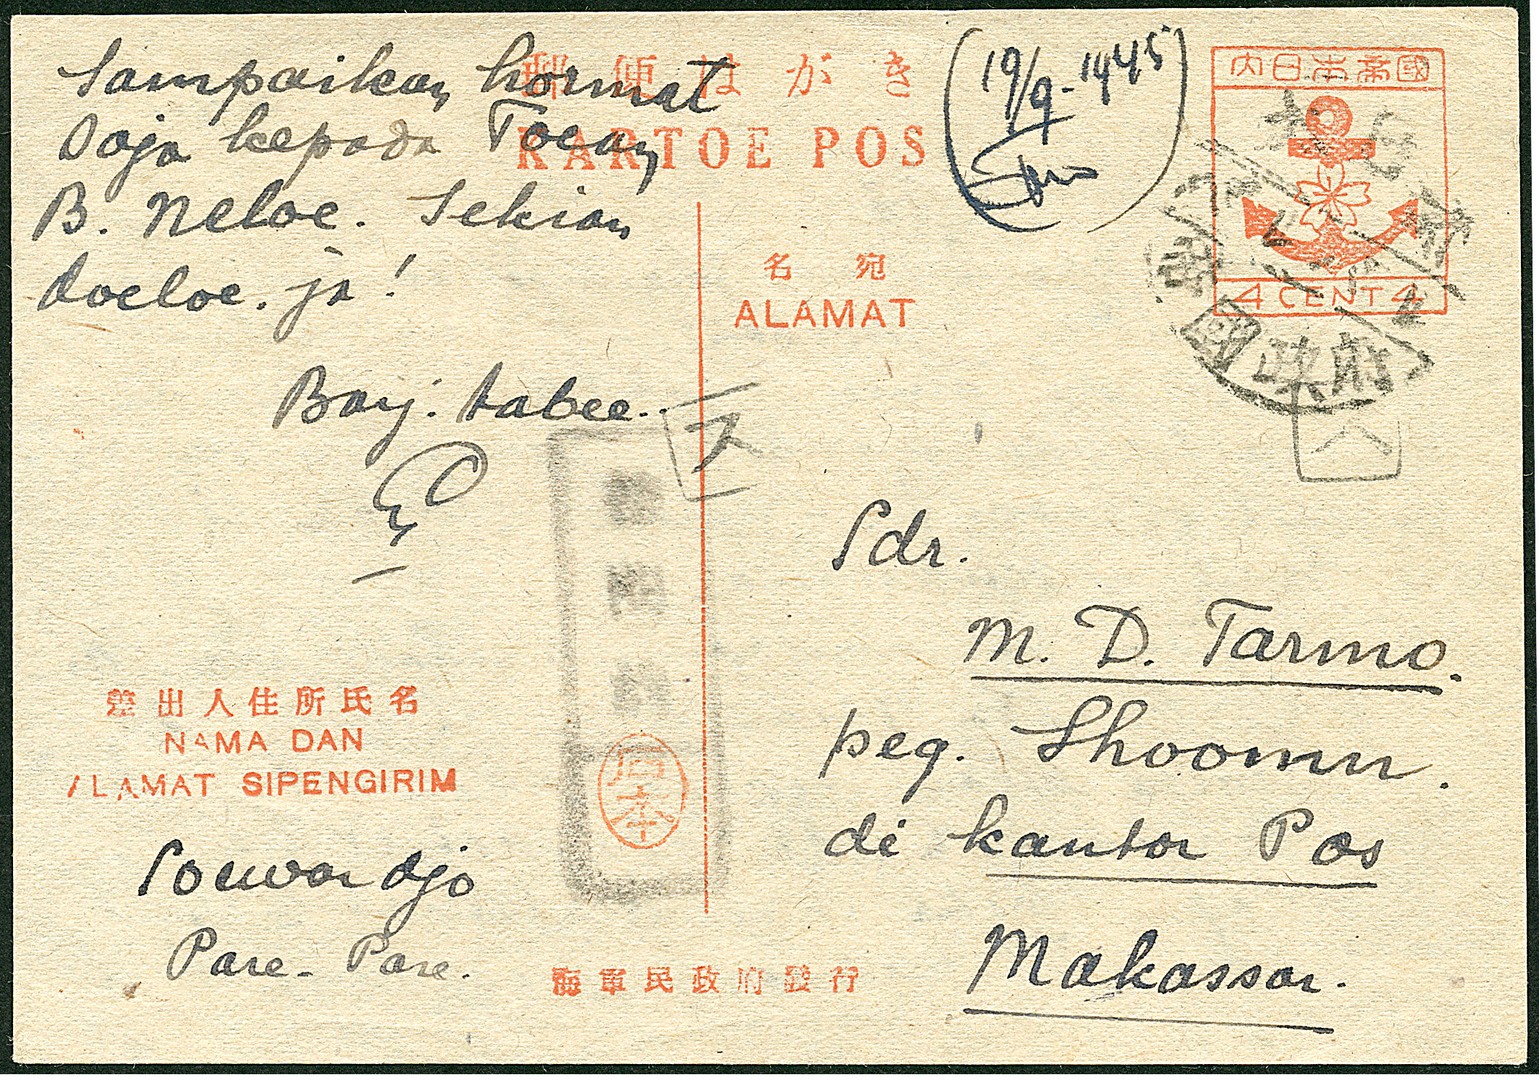 Sampaikan hormat
saja kepada Toean
B. Neloe. Sekian
doeloe. ja!
Bay. tabee.
郵便はがき
KARTOE POS
19/9-1945
國帝本日內
4 CENT 4
名宛
ALAMAT
政府
Sdr.
M. D. Tarmo.
peg. Shoomu.
di kantor Pos
Makassar.
差出人住所氏名
NAMA DAN
ALAMAT SIPENGIRIM
Soewardjo
Pare-Pare.
海軍民政府發行